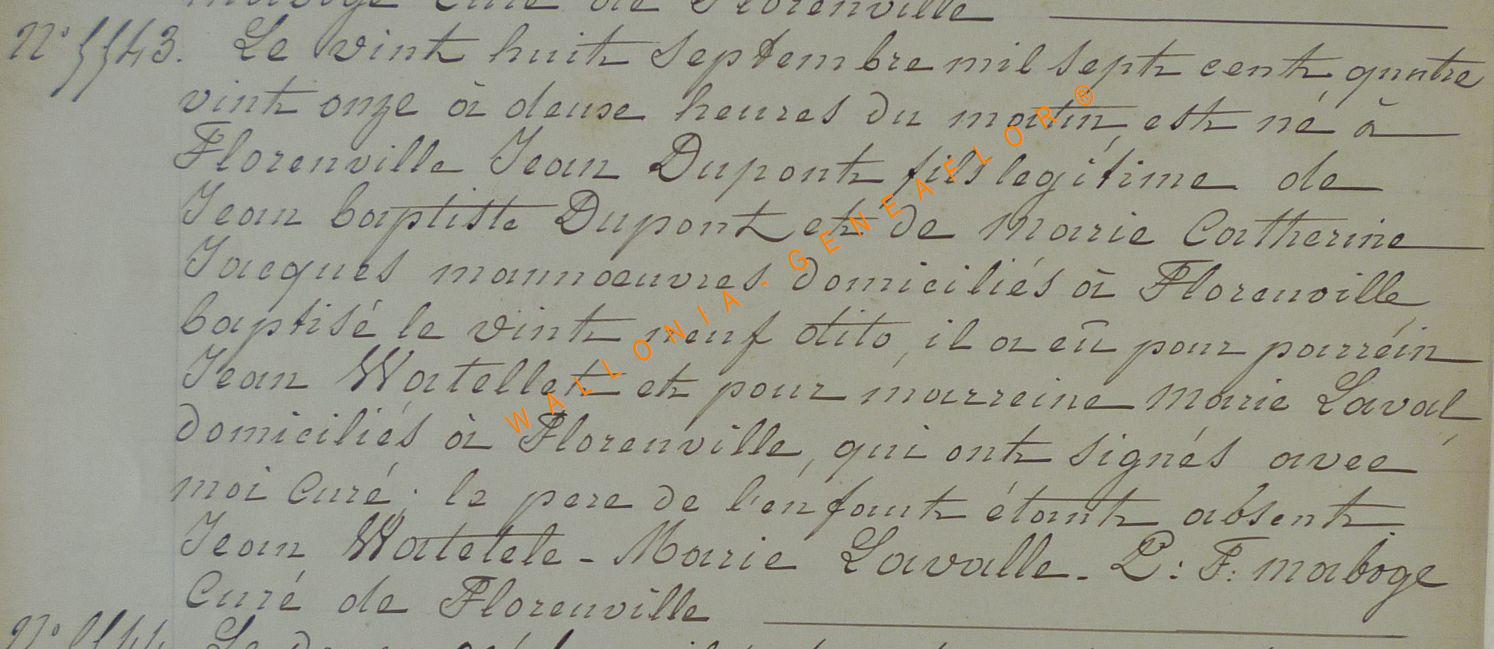 maboge Curé de Florenville
N° 5543. Le vint huit Septembre mil sept cent quatre
vint onze à deuse heures du matin est né à
Florenville Jean Dupont fils legitime de
Jean baptiste Dupont et de Marie Catherine
Jacques mannoeuvres domiciliés à Florenville
baptisé le vint neuf dito, il a eû pour parréin
Jean Watellet et pour marreine Marie Laval,
domiciliés à Florenville, qui ont signés avec
moi Curé; le pere de l'enfant étant absent.
Jean Watelele - Marie Lavalle - P: F: maboge
Curé de Florenville
WALLONIA - GENEAFLOR ®
N° 5544 Le